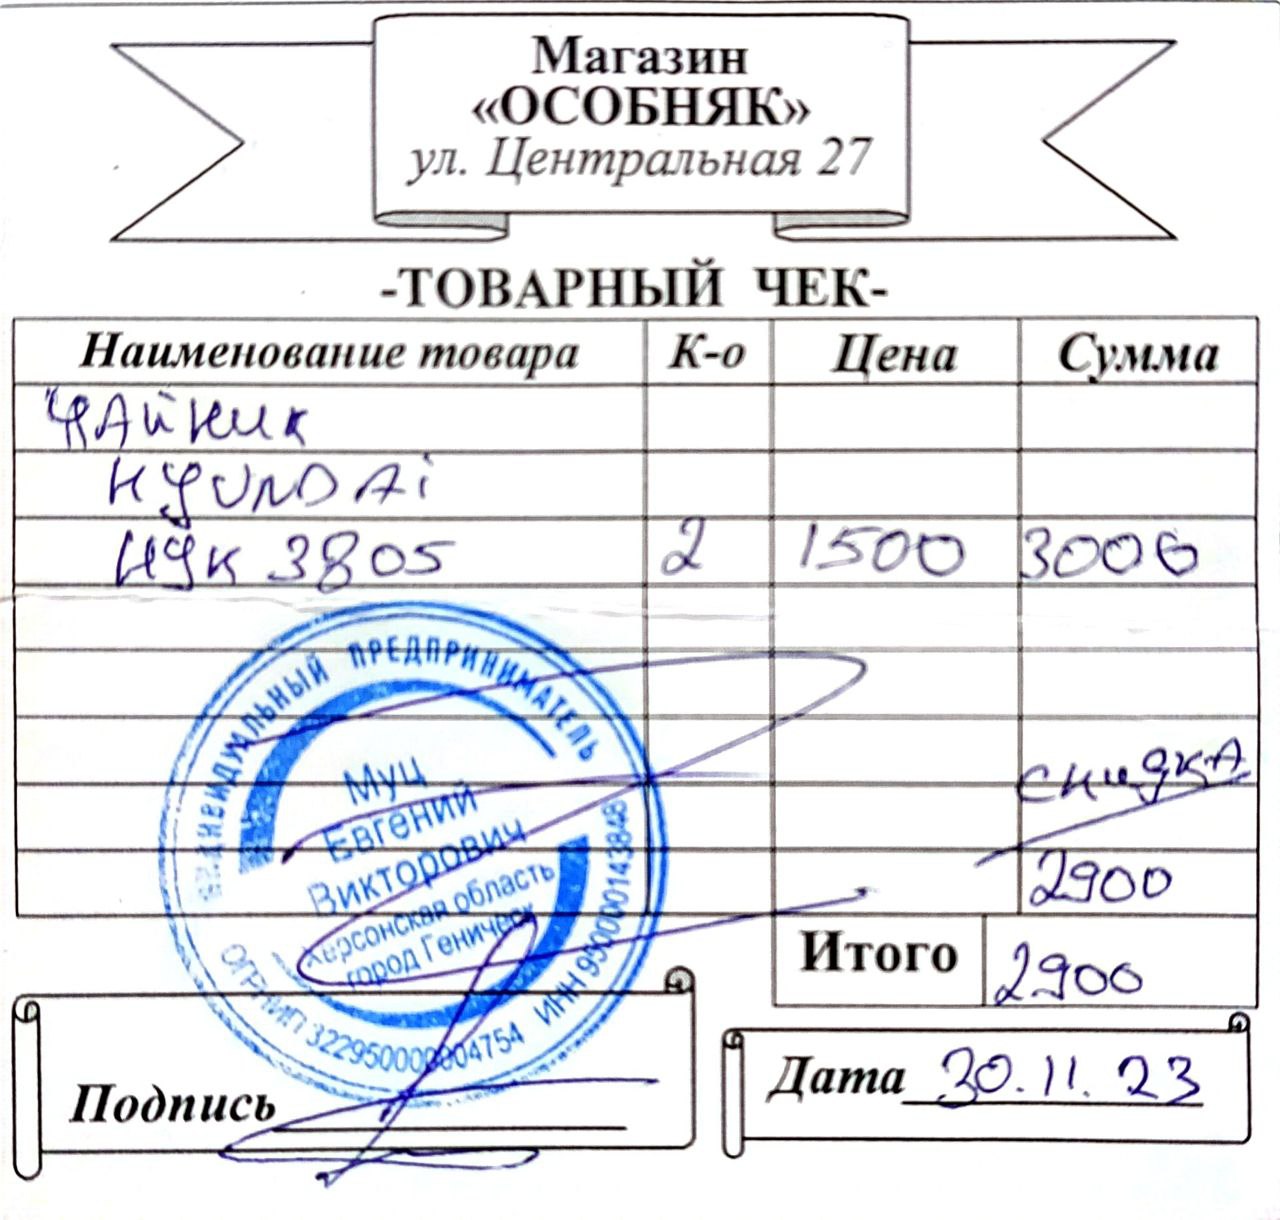 Магазин
«ОСОБНЯК»
ул. Центральная 27
-ТОВАРНЫЙ ЧЕК-
Наименование товара К-о Цена Сумма
Чайник
HYUNDAi
HYK 3805 2 1500 3000
ИНДИВИДУАЛЬНЫЙ ПРЕДПРИНИМАТЕЛЬ
Муц
Евгений
Викторович
Херсонская область
город Геническ
ОГРНИП 322950000004754 ИНН 950000143848
скидка
2900
Итого 2900
Подпись
Дата 30.11.23